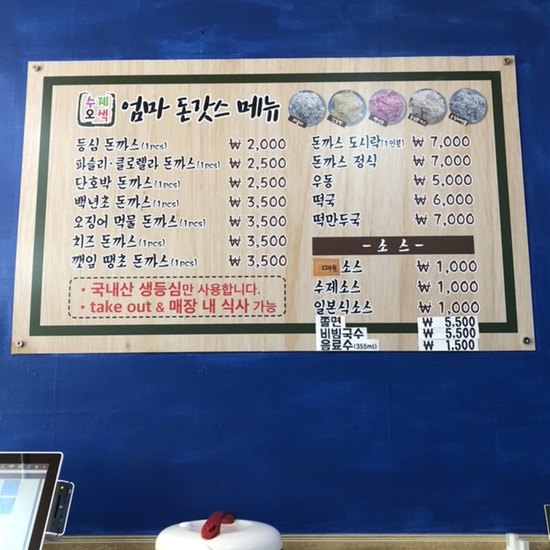 수제
오색
엄마 돈갓스 메뉴
등심 돈까스(1pcs) ₩ 2,000
파슬리·클로렐라 돈까스(1pcs) ₩ 2,500
단호박 돈까스(1pcs) ₩ 2,500
백년초 돈까스(1pcs) ₩ 3,500
오징어 먹물 돈까스(1pcs) ₩ 3,500
치즈 돈까스(1pcs) ₩ 3,500
깻임 땡초 돈까스(1pcs) ₩ 3,500
· 국내산 생등심만 사용합니다.
· take out & 매장 내 식사 가능
돈까스 도시락(1인분) ₩ 7,000
돈까스 정식 ₩ 7,000
우동 ₩ 5,000
떡국 ₩ 6,000
떡만두국 ₩ 7,000
- 소스 -
소스 ₩ 1,000
수제소스 ₩ 1,000
일본식소스 ₩ 1,000
쫄면 ₩ 5.500
비빔국수 ₩ 5.500
음료수(355ml) ₩ 1,500